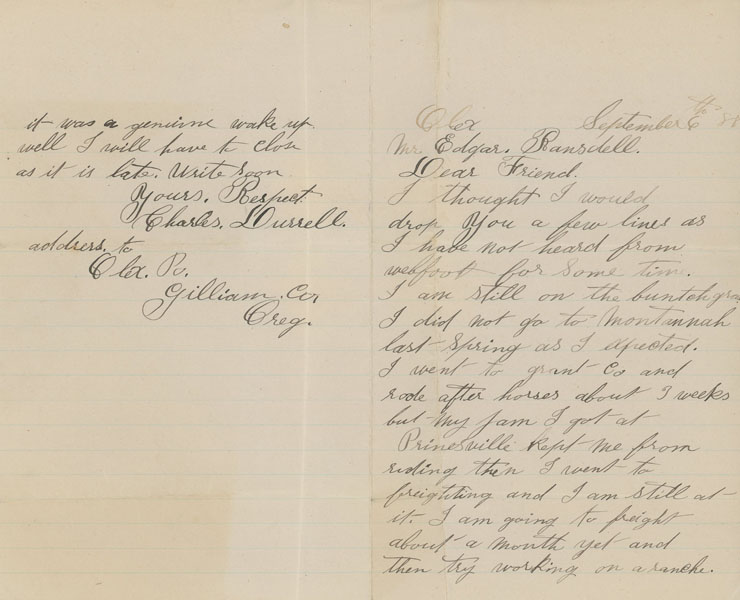 Olex September 6th
Mr Edgar. Ransdell.
Dear Friend.
I thought I would
drop you a few lines as
I have not heard from
webfoot for some time.
I am still on the buntchgra
I did not go to Montannah
last spring as I expected.
I went to grant Co and
rode after horses about 3 weeks
but my jam I got at
Prinesville kept me from
riding then I went to
freighting and I am still at
it. I am going to freight
about a month yet and
then try working on a ranche.
it was a genuine wake up
well I will have to close
as it is late. Write soon
Yours. Respect
Charles. Durrell.
address. to
Olex. Po.
Gilliam. Co,
Oreg.